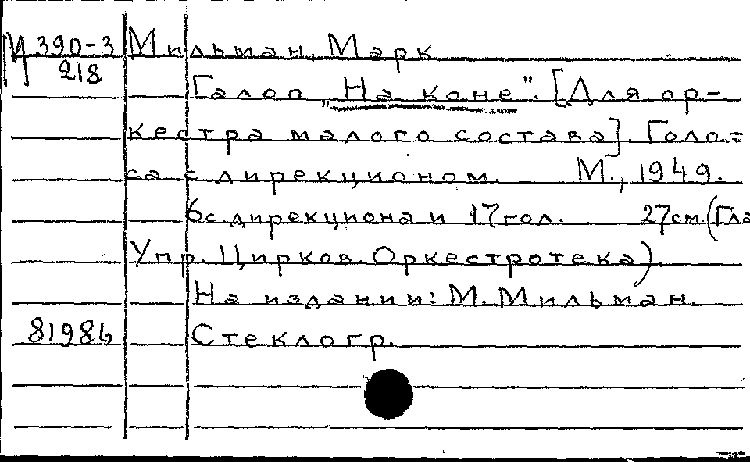 М 390-3 Мильман, Марк
218
Галоп „На коне". [Для ор-
кестра малого состава]. Голо=
са с дирекционом. М., 1949.
6с. дирекциона и 17 гол. 27см. (Гла
Упр. Цирков. Оркестротека).
На издании: М. Мильман.
8198 Стеклогр.